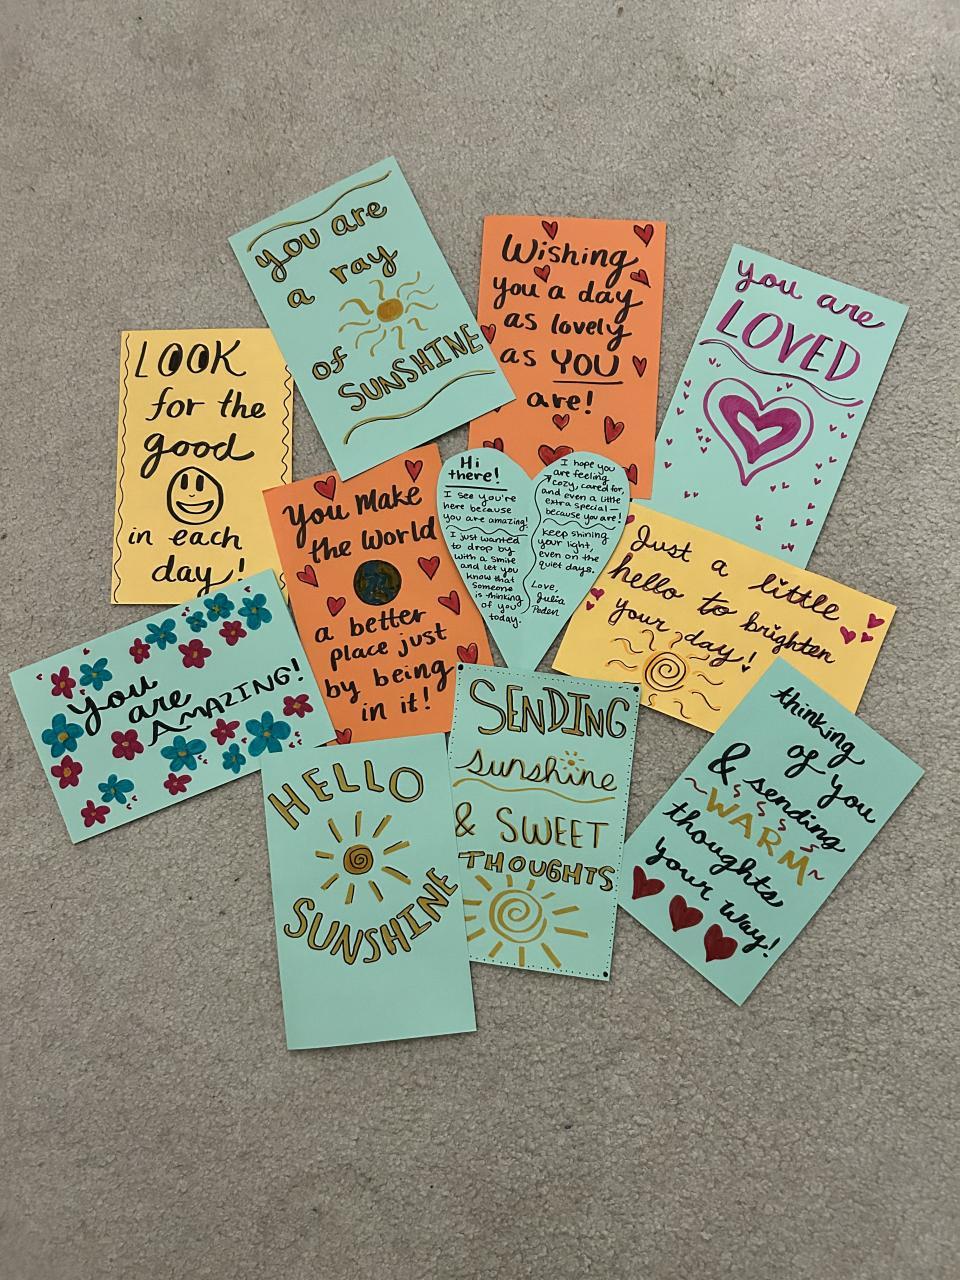 you are
a ray
of
SUNSHINE
Wishing
you a day
as lovely
as YOU
are!
you are
LOVED
LOOK
for the
good
in each
day!
You Make
the World
a better
place just
by being
in it!
Hi
there!
I see you're
here because
you are amazing!
I just wanted
to drop by
with a smile
and let you
know that
someone
is thinking
of you
today.
I hope you
are feeling
cozy, cared for,
and even a little
extra special—
because you are!
Keep shining
your light,
even on the
quiet days.
Love,
Julia
Just a little
hello to brighten
your day!
you
are
AMAZING!
SENDING
sunshine
& SWEET
THOUGHTS
thinking
of you
& sending
~WARM~
thoughts
your way!
HELLO
SUNSHINE